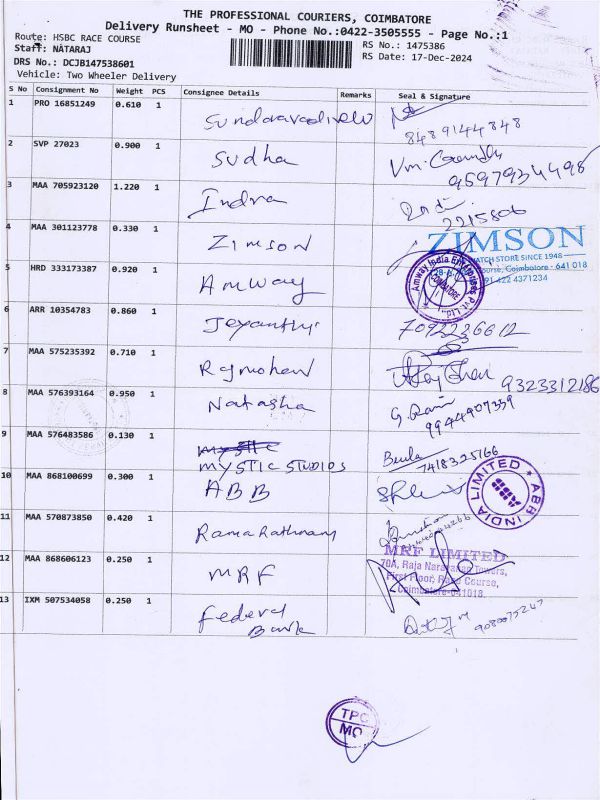 THE PROFESSIONAL COURIERS, COIMBATORE
Delivery Runsheet - MO - Phone No.:0422-3505555 - Page No.:1
Route: HSBC RACE COURSE
RS No.: 1475386
Staff: NATARAJ
RS Date: 17-Dec-2024
DRS No.: DCJB147538601
Vehicle: Two Wheeler Delivery
S No Consignment No Weight PCS Consignee Details Remarks Seal & Signature
1 PRO 16851249 0.610 1 Sundaravadivelu
8489144848
2 SVP 27023 0.900 1 Sudha
9597934498
3 MAA 705923120 1.220 1 Indra
2215806
4 MAA 301123778 0.330 1 Zimson
ZIMSON
WATCH STORE SINCE 1948
Course, Coimbatore - 641 018
91 422 4371234
5 HRD 333173387 0.920 1 Amway
Amway India Enterprises Pvt. Ltd.
COIMBATORE
6 ARR 10354783 0.860 1 Jeyanthi
7 MAA 575235392 0.710 1 Rajmohan
9323312186
8 MAA 576393164 0.950 1 Natasha
9944907339
9 MAA 576483586 0.130 1 mystic
MYSTIC STUDIOS
Beula
7418325166
10 MAA 868100699 0.300 1 ABB
ABB INDIA LIMITED
11 MAA 570873850 0.420 1 Rama Rathnam
12 MAA 868606123 0.250 1 MRF
MRF LIMITED
70A, Raja Narayanan Towers,
First Floor, Race Course,
Coimbatore-641018.
13 IXM 507534058 0.250 1 federal
Bank
TPC
MO